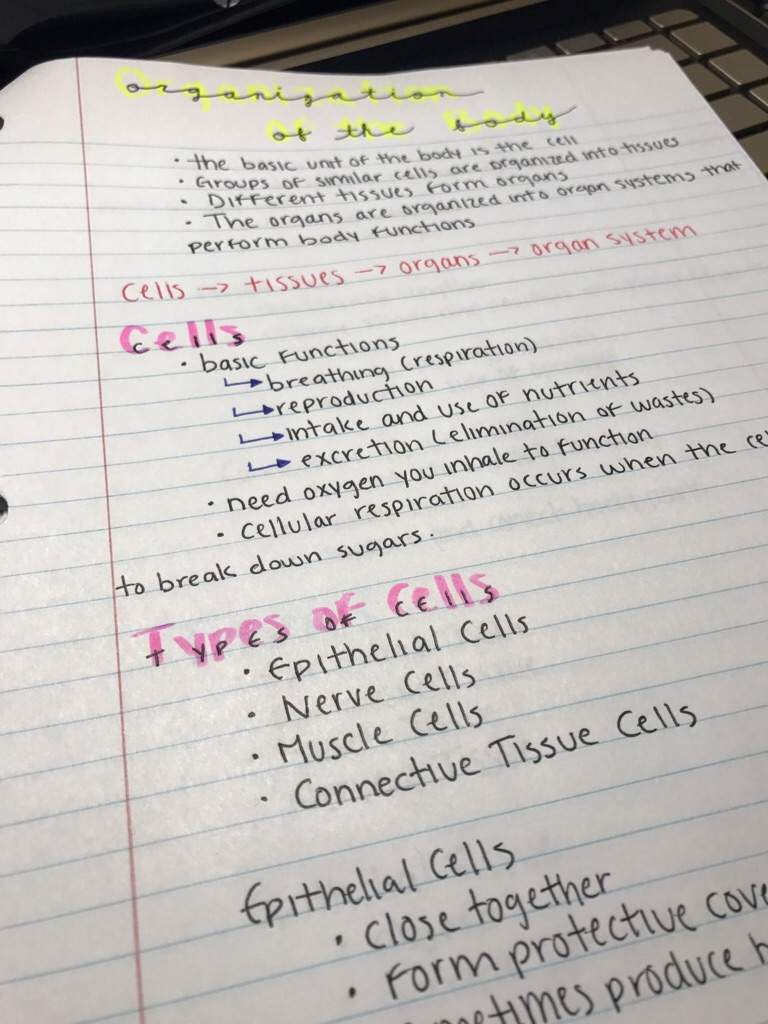 Organization
of the Body
• the basic unit of the body is the cell
• Groups of similar cells are organized into tissues
• Different tissues form organs
• The organs are organized into organ systems that
perform body functions
cells → tissues → organs → organ system
Cells
• basic functions
↳ breathing (respiration)
↳ reproduction
↳ intake and use of nutrients
↳ excretion (elimination of wastes)
• need oxygen you inhale to function
• cellular respiration occurs when the
to break down sugars.
Types of Cells
• Epithelial Cells
• Nerve Cells
• Muscle Cells
• Connective Tissue Cells
Epithelial Cells
• close together
• Form protective
produce